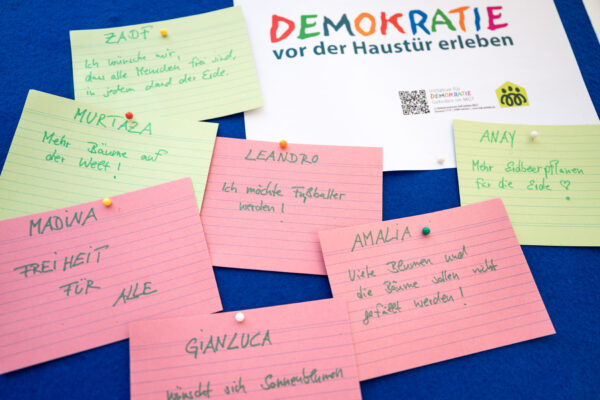 DEMOKRATIE
vor der Haustür erleben
Initiative für
DEMOKRATIE
ZADF
Ich wünsche mir,
dass alle Menschen frei sind,
in jedem Land der Erde.
MURTAZA
Mehr Bäume auf
der Welt!
LEANDRO
Ich möchte Fußballer
werden!
ANAY
Mehr Erdbeerpflanzen
für die Erde ♡
MADINA
FREIHEIT
FÜR
ALLE
AMALIA
Viele Blumen und
die Bäume sollen nicht
gefällt werden!
GIANLUCA
wünscht sich Sonnenblumen